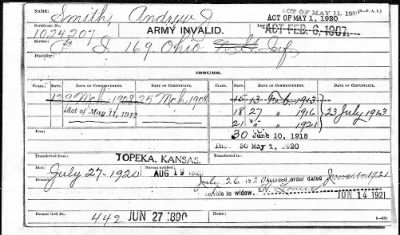 ACT OF MAY 11, 1912
NAME: Smith, Andrew J ACT OF MAY 1, 1920
Certificate No. ARMY INVALID. ACT FEB. 6, 1907.
1024207
Co I 169 Ohio Inf
ISSUES.
CLASS. DATE OF COMMENCEMENT. DATE OF CERTIFICATE. RATE. DATE OF COMMENCEMENT. DATE OF CERTIFICATE.
12 9 Mch 1908 25 Mch 1908 15 13 Feb 1913
Act of May 11, 1912 18 27 " 1916 23 July 1913
21 " 1921
30 June 10, 1918
50 May 1, 1920
Transferred from TOPEKA, KANSAS. Transferred to
July 27-1920 AUG 19
July 26
Accrued order dated 1921
to widow. JUN 14 1921
Former Roll No.
442 JUN 27 1890